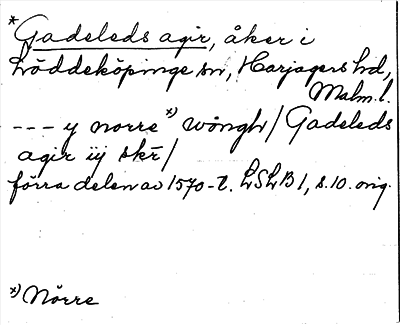 *Gadeleds agir, åker i
Löddeköpinge sn, Harjagers hd,
Malm. l.
--- y norre *) wöngh / Gadeleds
agir iij skr̄ /
förra delen av 1570-t. LSLB 1, s. 10. orig.
*) Nörre